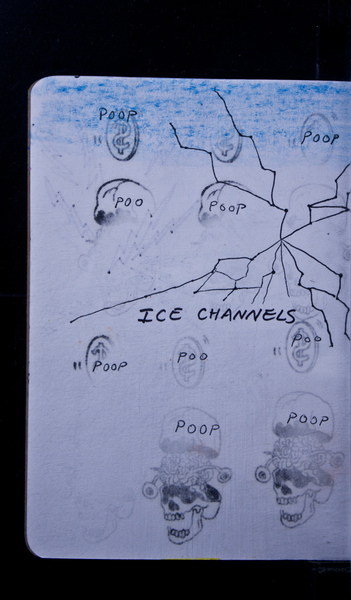 POOP
POOP
POO
POOP
ICE CHANNELS
POO
POOP
POO
POOP
POOP